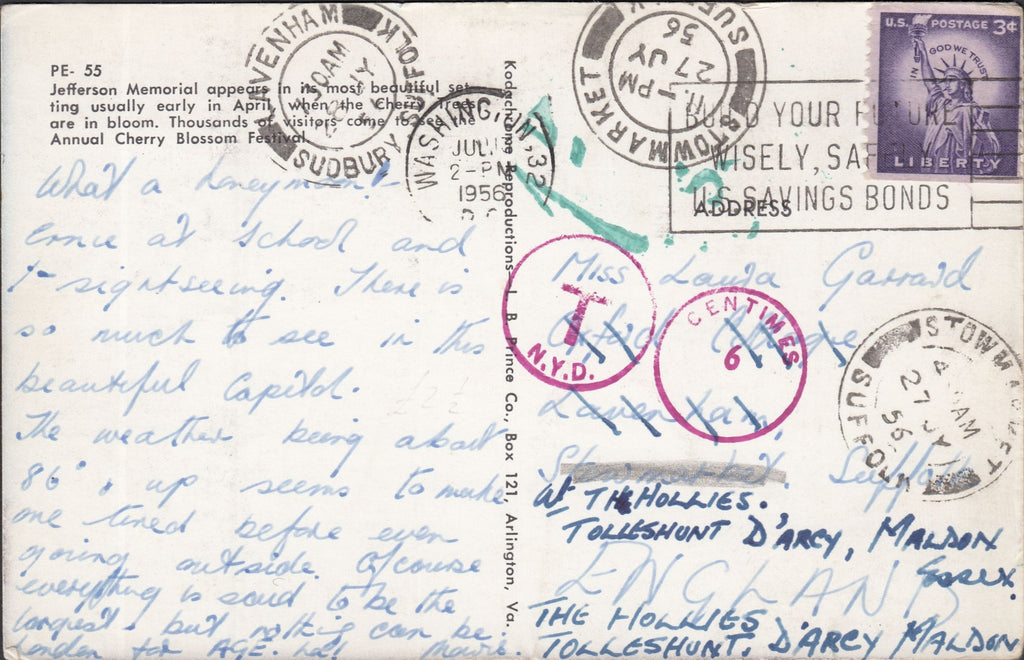 PE- 55
Jefferson Memorial appears in its most beautiful set-
ting usually early in April when the cherry trees
are in bloom. Thousands of visitors come to see the
Annual Cherry Blossom Festival.
What a honeymoon!
Ernie at school and
I - sightseeing. There is
so much to see in this
beautiful Capitol.
The weather being about
86° & up seems to make
one tired before even
going outside. Of course
everything is said to be the
largest - but nothing can be
London for AGE. Ha! Marie.
Kodachrome Reproductions—L. B. Prince Co., Box 121, Arlington, Va.
LAVENHAM
30 AM
JY
SUDBURY SUFFOLK
WASHINGTON, 32
JUL
2-PM
1956
D. C.
STOWMARKET SUFFOLK
PM
27 JY
56
BUILD YOUR FUTURE
WISELY, SAFELY
U.S. SAVINGS BONDS
U.S. POSTAGE 3¢
IN GOD WE TRUST
LIBERTY
ADDRESS
Miss Laura Garrard
Lavenham,
Suffolk
T
N.Y.D.
CENTIMES
6
STOWMARKET
AM
27 JY
56
SUFFOLK
at THE HOLLIES.
TOLLESHUNT D'ARCY, MALDON
ESSEX.
ENGLAND
THE HOLLIES
TOLLESHUNT. D'ARCY MALDON